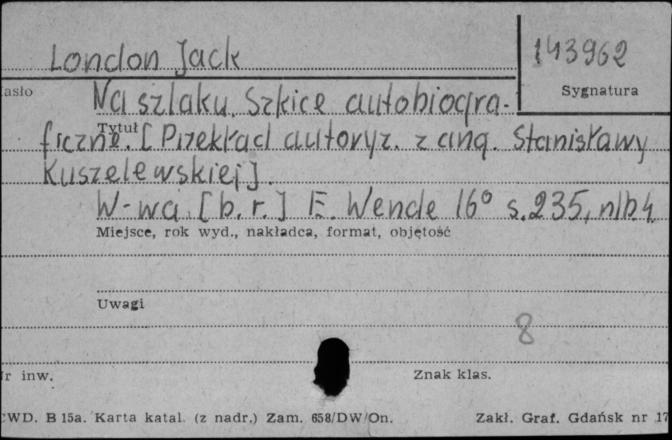 London Jack
143962
asło
Sygnatura
Na szlaku. Szkice autobiogra-
Tytuł
ficzne. [Przekład autoryz. z ang. Stanisławy
Kuszelewskiej].
W-wa [b.r.] E. Wende 16° s. 235, nlb 4.
Miejsce, rok wyd., nakładca, format, objętość
Uwagi
8
r inw.
Znak klas.
WD. B 15a. Karta katal. (z nadr.) Zam. 658/DW/On.
Zakł. Graf. Gdańsk nr 17